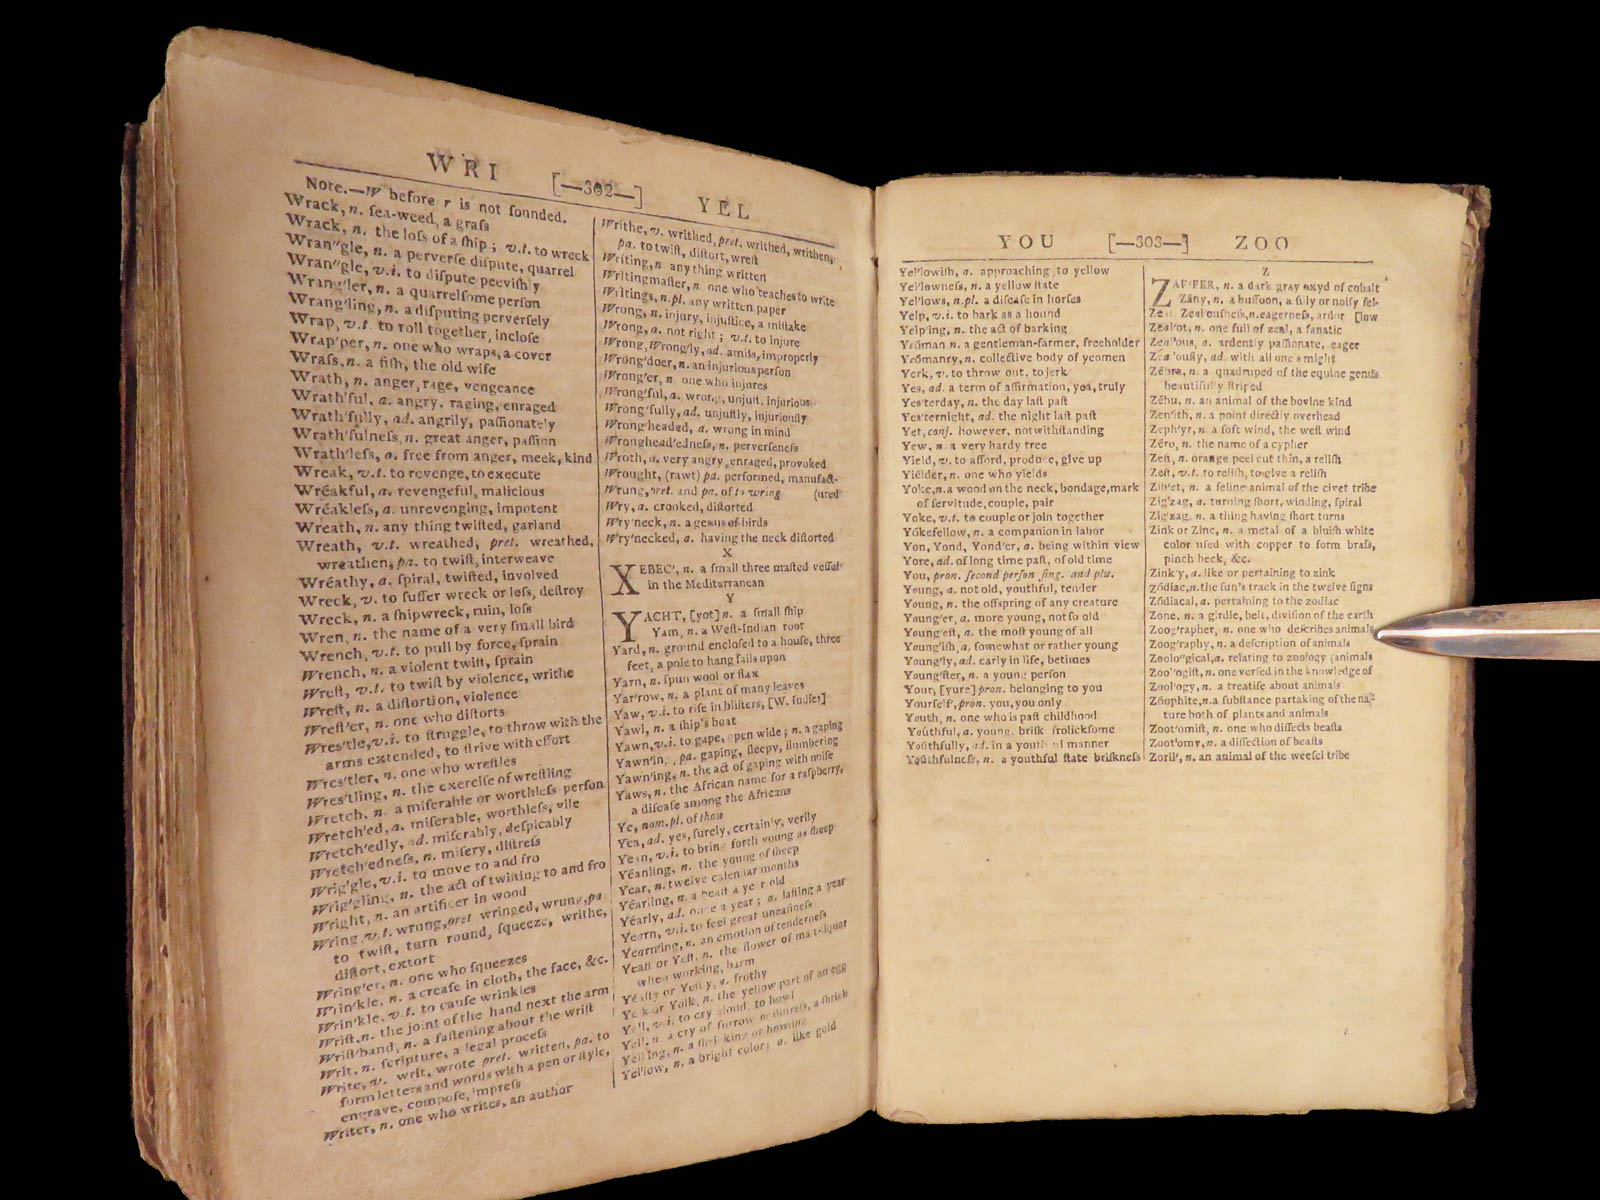 WRI [—302—] YEL
Note.—W before r is not sounded.
Wrack, n. ſea-weed, a graſs
Wrack, n. the loſs of a ſhip; v.t. to wreck
Wran"gle, n. a perverſe diſpute, quarrel
Wran"gle, v.i. to diſpute peeviſhly
Wrang'ler, n. a quarrelſome perſon
Wrang'ling, n. a diſputing perverſely
Wrap, v.t. to roll together, incloſe
Wrap'per, n. one who wraps, a cover
Wraſs, n. a fiſh, the old wife
Wrath, n. anger, rage, vengeance
Wrath'ful, a. angry, raging, enraged
Wrath'fully, ad. angrily, paſſionately
Wrath'fulneſs, n. great anger, paſſion
Wrath'leſs, a. free from anger, meek, kind
Wreak, v.t. to revenge, to execute
Wréakful, a. revengeful, malicious
Wréakleſs, a. unrevenging, impotent
Wreath, n. any thing twiſted, garland
Wreath, v.t. wreathed, pret. wreathed,
wreathen, pa. to twiſt, interweave
Wréathy, a. ſpiral, twiſted, involved
Wreck, v. to ſuffer wreck or loſs, deſtroy
Wreck, n. a ſhipwreck, ruin, loſs
Wren, n. the name of a very ſmall bird
Wrench, v.t. to pull by force, ſprain
Wrench, n. a violent twiſt, ſprain
Wreſt, v.t. to twiſt by violence, writhe
Wreſt, n. a diſtortion, violence
Wreſt'er, n. one who diſtorts
Wres'tle, v.i. to ſtruggle, to throw with the
arms extended, to ſtrive with effort
Wres'tler, n. one who wreſtles
Wres'tling, n. the exerciſe of wreſtling
Wretch, n. a miſerable or worthleſs perſon
Wretch'ed, a. miſerable, worthleſs, vile
Wretch'edly, ad. miſerably, deſpicably
Wretch'edneſs, n. miſery, diſtreſs
Wrig'gle, v.i. to move to and fro
Wrig'gling, n. the act of twiſting to and fro
Wright, n. an artificer in wood
Wring, v.t. wrung, pret. wringed, wrung, pa
to twiſt, turn round, ſqueeze, writhe,
diſtort, extort
Wring'er, n. one who ſqueezes
Wrin'kle, n. a creaſe in cloth, the face, &c.
Wrin'kle, v.t. to cauſe wrinkles
Wriſt, n. the joint of the hand next the arm
Wriſt'band, n. a faſtening about the wriſt
Writ, n. ſcripture, a legal proceſs
Write, v. writ, wrote pret. written, pa. to
form letters and words with a pen or ſtyle,
engrave, compoſe, impreſs
Writer, n. one who writes, an author
Writhe, v. writhed, pret. writhed, writhen,
pa. to twiſt, diſtort, wreſt
Writing, n any thing written
Writingmaſter, n one who teaches to write
Writings, n.pl. any written paper
Wrong, n. injury, injuſtice, a miſtake
Wrong, a. not right; v.t. to injure
Wrong, Wrong'ly, ad. amiſs, improperly
Wrong'doer, n. an injurious perſon
Wrong'er, n one who injures
Wrong'ful, a. wrong, unjuſt, injurious
Wrong'fully, ad. unjuſtly, injuriouſly
Wrong'headed, a. wrong in mind
Wronghead'edneſs, n. perverſeneſs
Wroth, a. very angry, enraged, provoked
Wrought, (rawt) pa. performed, manufact-
Wrung, pret. and pa. of to wring (ured
Wry, a. crooked, diſtorted
Wry'neck, n. a genus of birds
Wry'necked, a. having the neck diſtorted
X
XEBEC', n. a ſmall three maſted veſſel
in the Mediterranean
Y
YACHT, [yot] n. a ſmall ſhip
Yam, n. a Weſt-Indian root
Yard, n. ground encloſed to a houſe, three
feet, a pole to hang ſails upon
Yarn, n. ſpun wool or flax
Yar'row, n. a plant of many leaves
Yaw, v.i. to riſe in bliſters, [W. Indies]
Yawl, n. a ſhip's boat
Yawn, v.i. to gape, open wide; n. a gaping
Yawn'in, pa. gaping, ſleepy, ſlumbering
Yawn'ing, n. the act of gaping with noiſe
Yaws, n. the African name for a raſpberry,
a diſeaſe among the Africans
Ye, nom.pl. of thou
Yea, ad. yes, ſurely, certainly, verily
Yean, v.i. to bring forth young as ſheep
Yéanling, n. the young of ſheep
Year, n. twelve calendar months
Yéarling, n. a beaſt a year old
Yéarly, ad. once a year; a. laſting a year
Yearn, v.i. to feel great uneaſineſs
Yearn'ing, n. an emotion of tenderneſs
Yeaſt or Yeſt, n. the flower of malt-liquor
when working, barm
Yéaſty or Yeſty, a. frothy
Yelk or Yolk, n. the yellow part of an egg
Yell, v.i. to cry aloud, to howl
Yell, n. a cry of ſorrow or diſtreſs, a ſhriek
Yelling, n. a ſhrieking or howling
Yel'low, n. a bright color; a. like gold
YOU [—303—] ZOO
Yel'lowiſh, a. approaching to yellow
Yel'lowneſs, n. a yellow ſtate
Yel'lows, n.pl. a diſeaſe in horſes
Yelp, v.i. to bark as a hound
Yelp'ing, n. the act of barking
Yeóman n. a gentleman-farmer, freeholder
Yeómanry, n. collective body of yeomen
Yerk, v. to throw out, to jerk
Yes, ad. a term of affirmation, yea, truly
Yes'terday, n. the day laſt paſt
Yes'ternight, ad. the night laſt paſt
Yet, conj. however, notwithſtanding
Yew, n. a very hardy tree
Yield, v. to afford, produce, give up
Yiélder, n. one who yields
Yoke, n. a wood on the neck, bondage, mark
of ſervitude, couple, pair
Yoke, v.t. to couple or join together
Yókefellow, n. a companion in labor
Yon, Yond, Yond'er, a. being within view
Yore, ad. of long time paſt, of old time
You, pron. ſecond perſon ſing. and plu.
Young, a. not old, youthful, tender
Young, n. the offspring of any creature
Young'er, a. more young, not ſo old
Young'eſt, a. the moſt young of all
Young'iſh, a, ſomewhat or rather young
Young'ly, ad. early in life, betimes
Young'ſter, n. a young perſon
Your, [yure] pron. belonging to you
Yourſelf, pron. you, you only
Youth, n. one who is paſt childhood
Yoúthful, a. young, briſk frolickſome
Yoúthfully, ad. in a youthful manner
Yoúthfulneſs, n. a youthful ſtate briſkneſs
Z
ZAF'FER, n. a dark gray oxyd of cobalt
Zány, n. a buffoon, a ſilly or noiſy fel-
Zeal Zeal'ouſneſs, n. eagerneſs, ardor [low
Zeal'ot, n. one full of zeal, a fanatic
Zeal'ous, a. ardently paſſionate, eager
Zeal'ouſly, ad. with all one's might
Zébra, n. a quadruped of the equine genus
beautifully ſtriped
Zébu, n. an animal of the bovine kind
Zen'ith, n. a point directly overhead
Zeph'yr, n. a ſoft wind, the weſt wind
Zéro, n. the name of a cypher
Zeſt, n. orange peel cut thin, a reliſh
Zeſt, v.t. to reliſh, to give a reliſh
Zib'et, n. a feline animal of the civet tribe
Zig'zag, a. turning ſhort, winding, ſpiral
Zig'zag, n. a thing having ſhort turns
Zink or Zinc, n. a metal of a bluiſh white
color uſed with copper to form braſs,
pinch beck, &c.
Zink'y, a. like or pertaining to zink
Zódiac, n. the ſun's track in the twelve ſigns
Zódiacal, a. pertaining to the zodiac
Zone, n. a girdle, belt, diviſion of the earth
Zoog'rapher, n. one who deſcribes animals
Zoog'raphy, n. a deſcription of animals
Zoolo"gical, a. relating to zoology (animals
Zool'ogiſt, n. one verſed in the knowledge of
Zool'ogy, n. a treatiſe about animals
Zóophite, n. a ſubſtance partaking of the na-
ture both of plants and animals
Zoot'omiſt, n. one who diſſects beaſts
Zoot'omy, n. a diſſection of beaſts
Zoril', n. an animal of the weeſel tribe